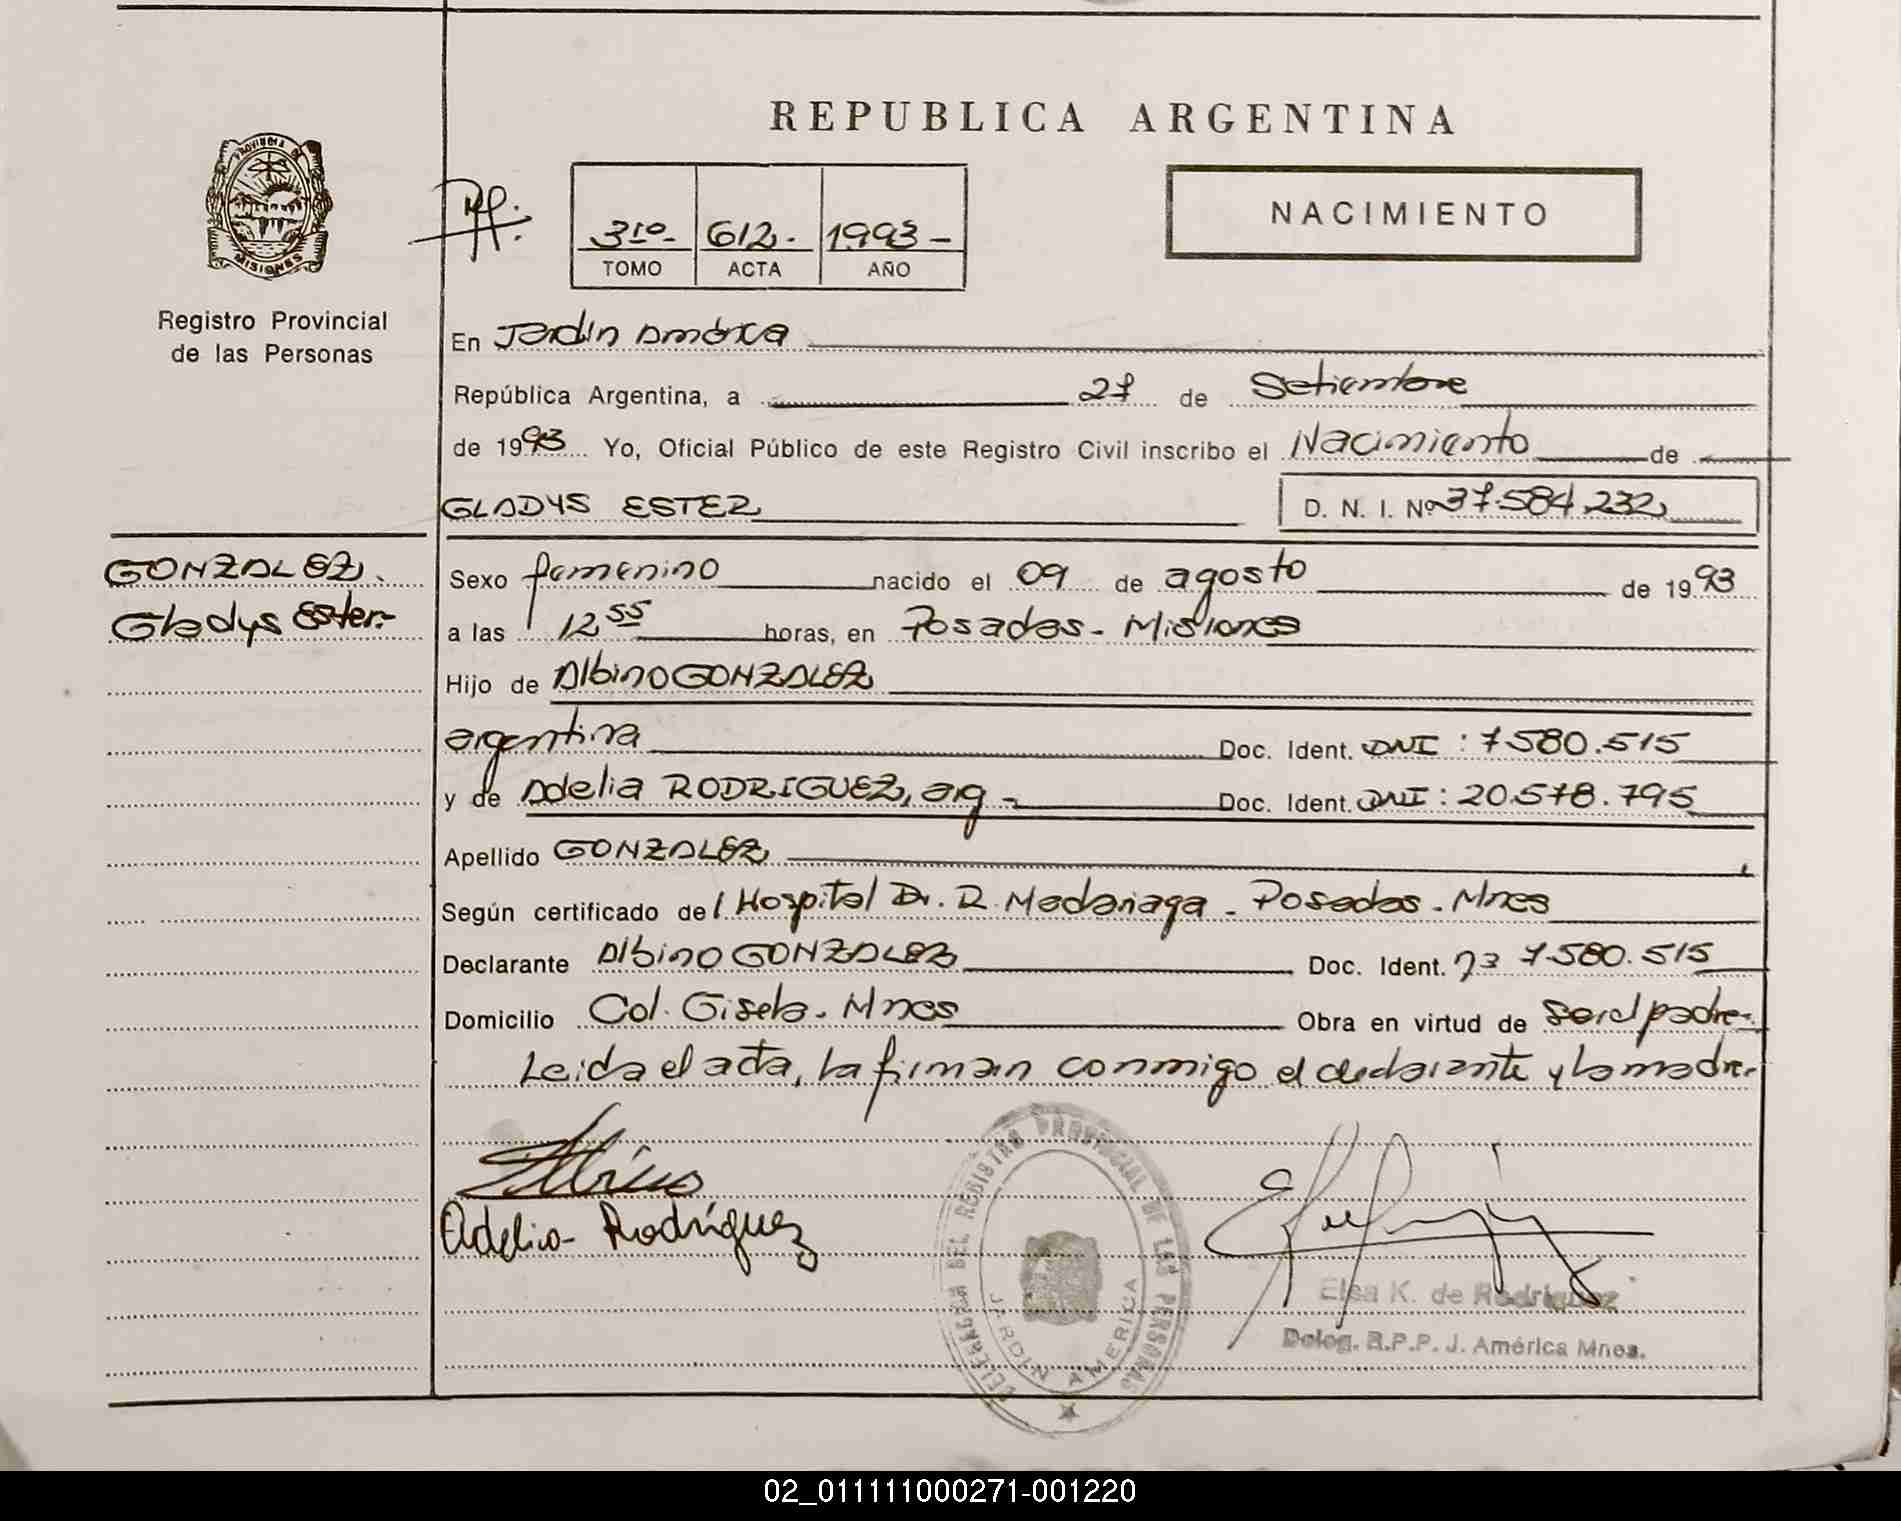 REPUBLICA ARGENTINA
PROVINCIA DE
MISIONES
Registro Provincial
de las Personas
3ro- 612- 1993-
TOMO ACTA AÑO
NACIMIENTO
En Jardín América
República Argentina, a 27 de Setiembre
de 1993 Yo, Oficial Público de este Registro Civil inscribo el Nacimiento de
GLADYS ESTER D. N. I. Nº 37.584.232
GONZALEZ.
Gladys Ester.-
Sexo femenino nacido el 09 de agosto de 1993
a las 12 55 horas, en Posadas - Misiones
Hijo de Albino GONZALEZ
argentina Doc. Ident. DNI : 7580.515
y de Adelia RODRIGUEZ, arg - Doc. Ident. DNI : 20.578.795
Apellido GONZALEZ
Según certificado del Hospital Dr. R. Madariaga - Posadas - Mnes
Declarante Albino GONZALEZ Doc. Ident. 7.580.515
Domicilio Col. Gisela - Mnes Obra en virtud de ser el padre-
Leida el acta, la firman conmigo el declarante y la madre.
Adelia Rodríguez
DELEGACION DEL REGISTRO PROVINCIAL DE LAS PERSONAS
JARDIN AMERICA
Elsa K. de Rodriguez
Deleg. R.P.P. J. América Mnes.
02_011111000271-001220